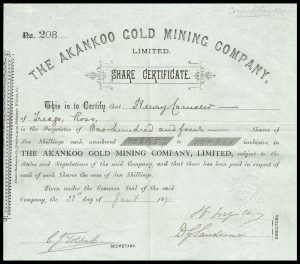 No. 208
THE AKANKOO GOLD MINING COMPANY,
LIMITED.
SHARE CERTIFICATE.
This is to Certify that Henry
of
is the Proprietor of One hundred and four Shares of
Ten Shillings each, numbered to inclusive, in
THE AKANKOO GOLD MINING COMPANY, LIMITED, subject to the
Rules and Regulations of the said Company, and that there has been paid in respect
of each of such Shares the sum of Ten Shillings.
Given under the Common Seal of the said
Company, the day of
SECRETARY.
DIRECTORS.